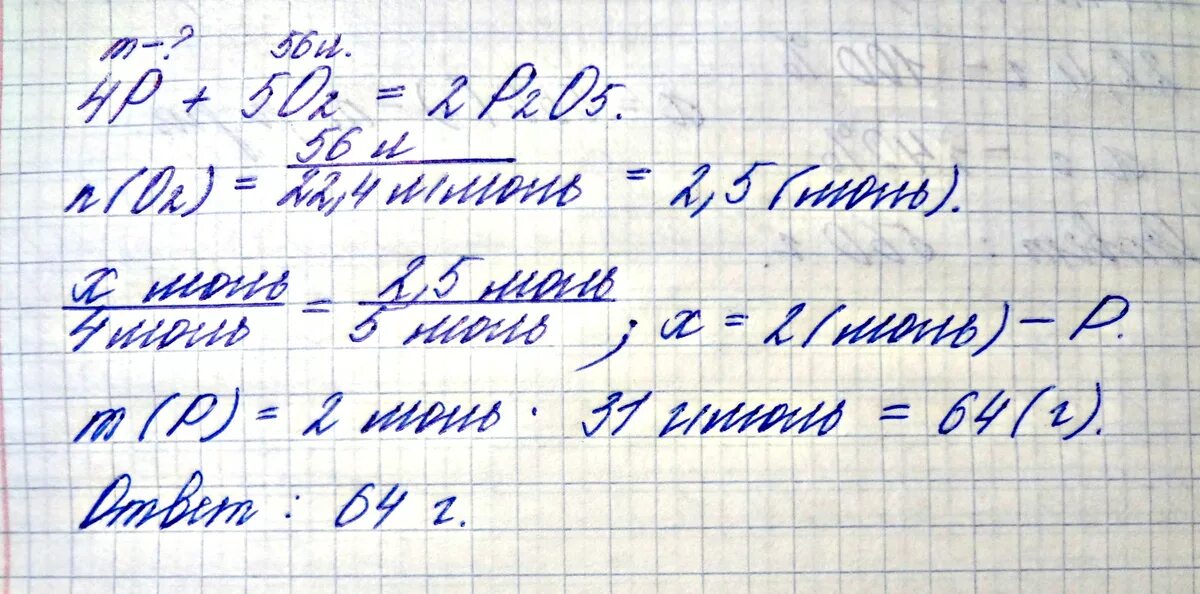 m-? 56л.
4P + 5O2 = 2P2O5.
n(O2) = 56 л / 22,4 л/моль = 2,5 (моль).
x моль / 4 моль = 2,5 моль / 5 моль ; x = 2 (моль) - P.
m(P) = 2 моль · 31 г/моль = 64 (г).
Ответ: 64 г.